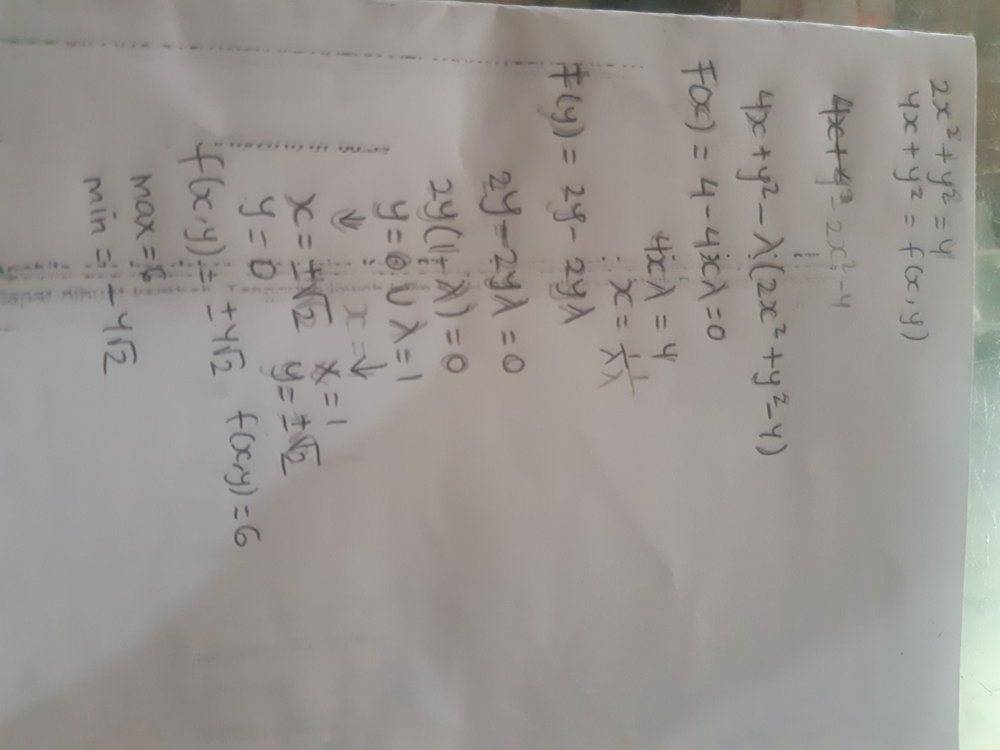 2x² + y² = 4
4x + y² = f(x,y)
4x + y² 2x² - 4
4x + y² - λ(2x² + y² - 4)
F(x) = 4 - 4xλ = 0
4xλ = 4
x = 1/λ
F(y) = 2y - 2yλ
2y - 2yλ = 0
2y(1 - λ) = 0
y = 0 U λ = 1
↓ x = ↓
x = ±√2 x = 1
y = 0 y = ±√2
f(x,y) = ±4√2 f(x,y) = 6
max = 6
min = -4√2